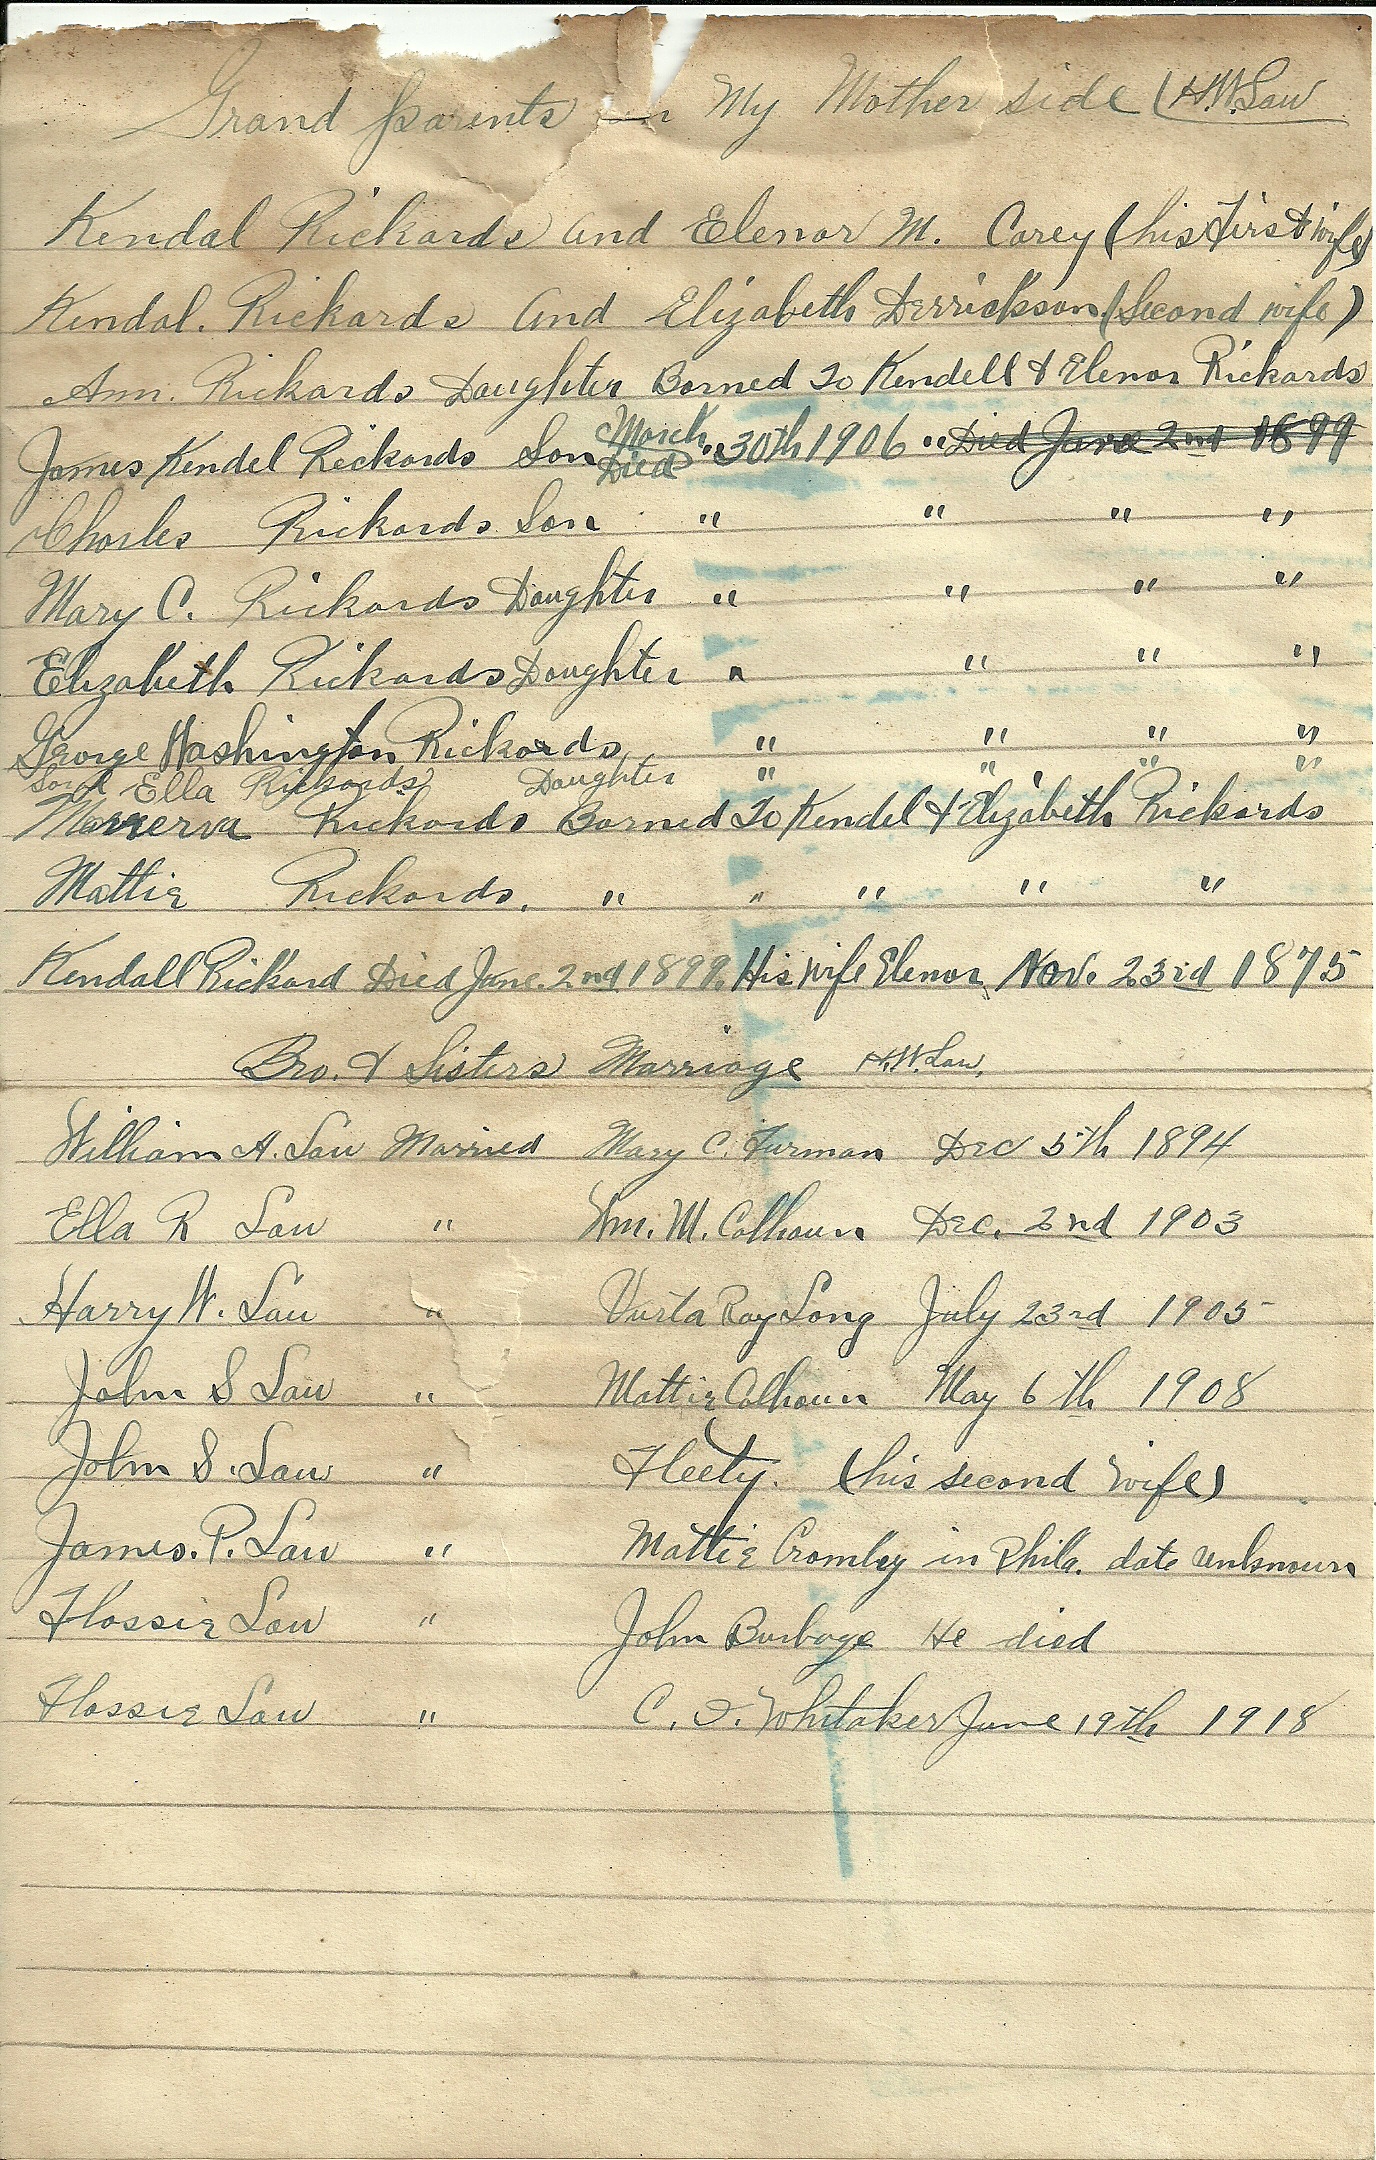 Grand parents on My Mother side (H.W. Law
Kendal Rickards and Elenor M. Carey (his First wife)
Kendal. Rickards and Elizabeth Derrickson (Second wife)
Ann. Rickards Daughter Borned To Kendell & Elenor Rickards
James Kendel Rickards Son March Died " 30th 1906 " Died June 2nd 1899
Charles Rickards Son " " " "
Mary C. Rickards Daughter " " " "
Elizabeth Rickards Daughter " " " "
George Washington Rickards " " " "
Son & Ella Rickards Daughter " " " "
Minerva Rickards Borned To Kendel & Elizabeth Rickards
Mattie Rickards. " " " " "
Kendall Rickard Died June. 2nd 1899. His wife Elenor Nov. 23rd 1875
Bro. & Sisters Marriage H.W. Law.
William A. Law Married Mary C. Furman Dec 5th 1894
Ella R Law " Wm. M. Calhoun Dec. 2nd 1903
Harry W. Law " Versta Ray Long July 23rd 1905
John S Law " Mattie Calhoun May 6th 1908
John S. Law " Fleety. (his second wife)
James. P. Law " Mattie Cromley in Phila. date unknown
Flossie Law " John Burbage He died
Flossie Law " C. I. Whitaker June 19th 1918